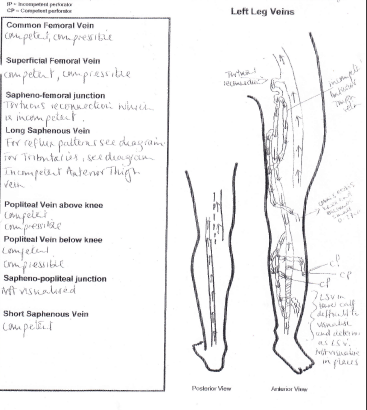 IP = Incompetent perforator
CP = Competent perforator
Left Leg Veins
Common Femoral Vein
competent, compressible
Superficial Femoral Vein
competent, compressible
Sapheno-femoral junction
Tortuous reconnection which
is incompetent.
Long Saphenous Vein
For reflux patterns see diagram
For Tributaries, see diagram
Incompetent Anterior Thigh
vein
Popliteal Vein above knee
competent
compressible
Popliteal Vein below knee
competent
compressible
Sapheno-popliteal junction
Not visualised
Short Saphenous Vein
Competent
Tortuous
reconnection
incompetent
anterior
thigh
vein
CP
CP
CP
LSV in
calf
difficult to
visualise
and
as LSV.
Not visualised
in places
Posterior View
Anterior View